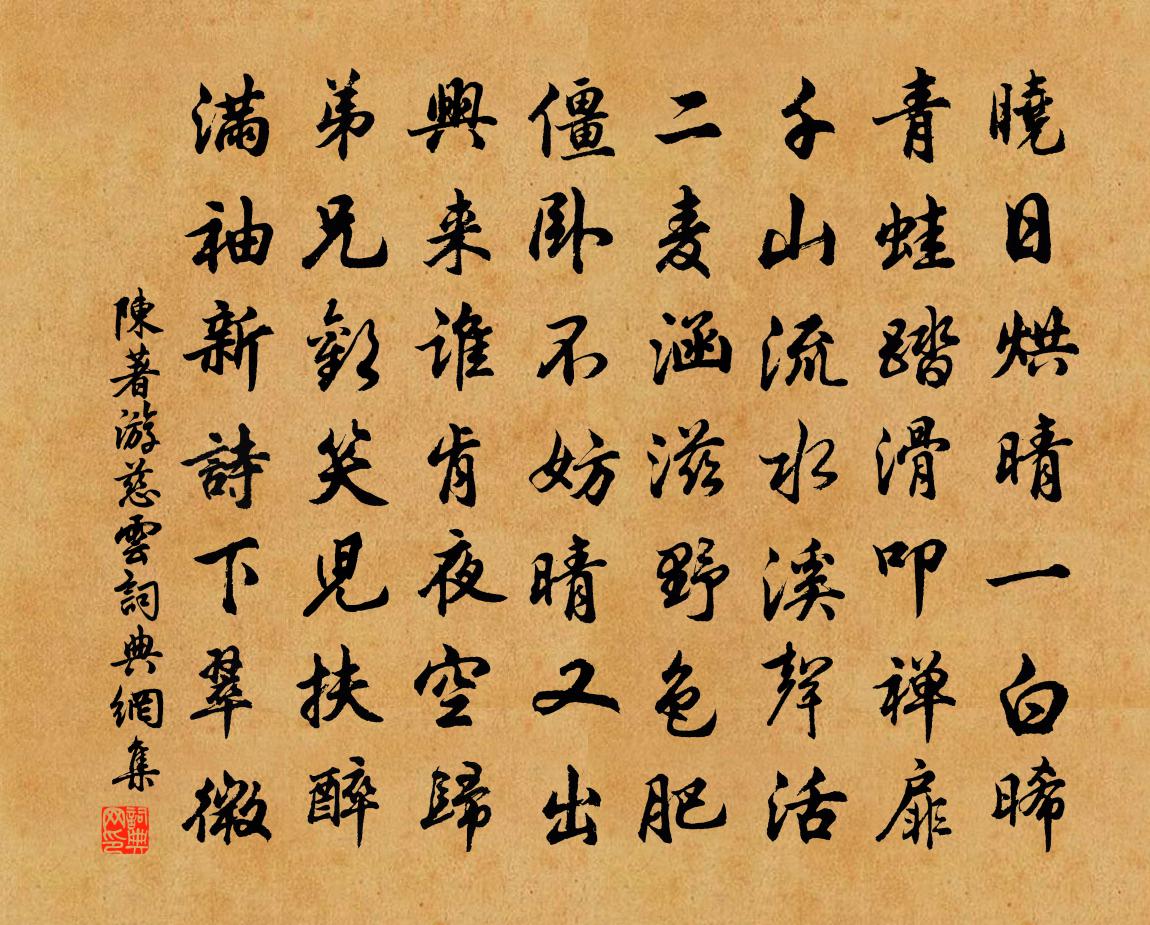 曉日烘晴一白晞
青蛙踏滑叩禅扉
千山流水溪聲活
二麦涵滋野色肥
僵卧不妨晴又出
興来谁肯夜空歸
弟兄歡笑児扶醉
满袖新詩下翠微
陳著游慈雲詞典網集
詞典网印